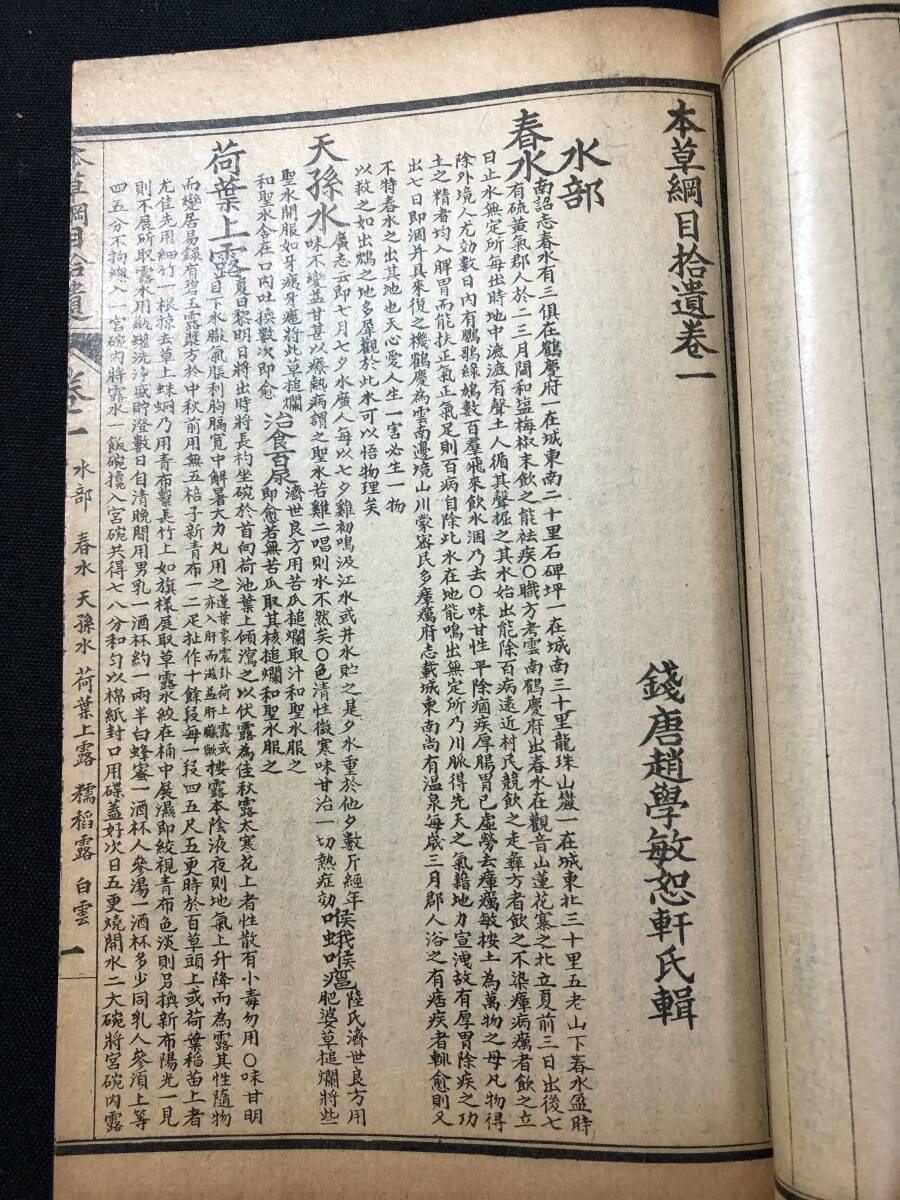 本草綱目拾遺卷一
錢唐趙學敏恕軒氏輯
水部
春水
南詔志春水有三俱在鶴慶府一在城東南二十里石碑坪一在城南三十里龍珠山巖一在城東北三十里五老山下春水盈時
有硫黃氣郡人於二三月間和塩梅椒末飲之能祛疾〇職方考雲南鶴慶府出春水在觀音山蓮花寨之北立夏前三日出後七
日止水無定所每出時地中漉漉有聲土人循其聲掘之其水始出能除百病遠近村民競飲之走彝方者飲之不染瘴病癘者飲之立
除外境人尤効數日內有鸚鵡綠鳩數百羣飛來飲水涸乃去〇味甘性平除痼疾厚腸胃已虛勞去瘴癘敏按土為萬物之母凡物得
土之精者均入脾胃而能扶正氣正氣足則百病自除此水在地能鳴出無定所乃川脈得先天之氣藉地力宣洩故有厚胃除疾之功
出七日即涸并具來復之機鶴慶為雲南邊境山川蒙密民多瘴癘府志載城東南尚有温泉每歲三月郡人浴之有痞疾者輒愈則又
不特春水之出其池也天心愛人生一害必生一物
以救之如出鴆之地多犀觀於此水可以悟物理矣
天孫水
廣志云即七月七夕水廣人每以七夕雞初鳴汲江水或井水貯之是夕水重於他夕數斤經年
味不變益甘甚以療熱病謂之聖水若雞二唱則水不然矣〇色清性微寒味甘治一切熱症効
喉蛾喉𤺄
陸氏濟世良方用
肥婆草槌爛將些
聖水開服如牙癰牙疵將此草槌爛
和聖水含在口內吐換數次即愈
治食百尿
濟世良方用苦瓜槌爛取汁和聖水服之
即愈若無苦瓜取其核槌爛和聖水服之
荷葉上露
夏日黎明日將出時將長杓坐碗於首向荷池葉上傾瀉之以伏露為佳秋露太寒花上者性散有小毒勿用〇味甘明
目下水臌氣脹利胸膈寬中解暑大力丸用之
蓬葉象震卦荷上露或
亦入肝而滋益肝臟歟
樓露本陰液夜則地氣上升降而為露其性隨物
而變居易錄有碧玉露漿方於中秋前用無五棓子新青布一二疋扯作十餘段每一段四五尺五更時於百草頭上或荷葉稻苗上者
尤佳先用細竹一根掠去草上蛛網乃用青布繫長竹上如旗樣展取草露水絞在桶中展濕即絞視青布色淡則另換新布陽光一見
則不展所取露水用瓶罐洗淨盛貯澄數日自清晚間用男乳一酒杯約一兩半白蜂蜜一酒杯人參湯一酒杯多少同乳人參湏上等
四五分不拘總入一宮碗內將露水一飯碗攙入宮碗共得七八分和勻以棉紙封口用碟蓋好次日五更燒開水二大碗將宮碗內露
本草綱目拾遺 卷一 水部 春水 天孫水 荷葉上露 糯稻露 白雲 一